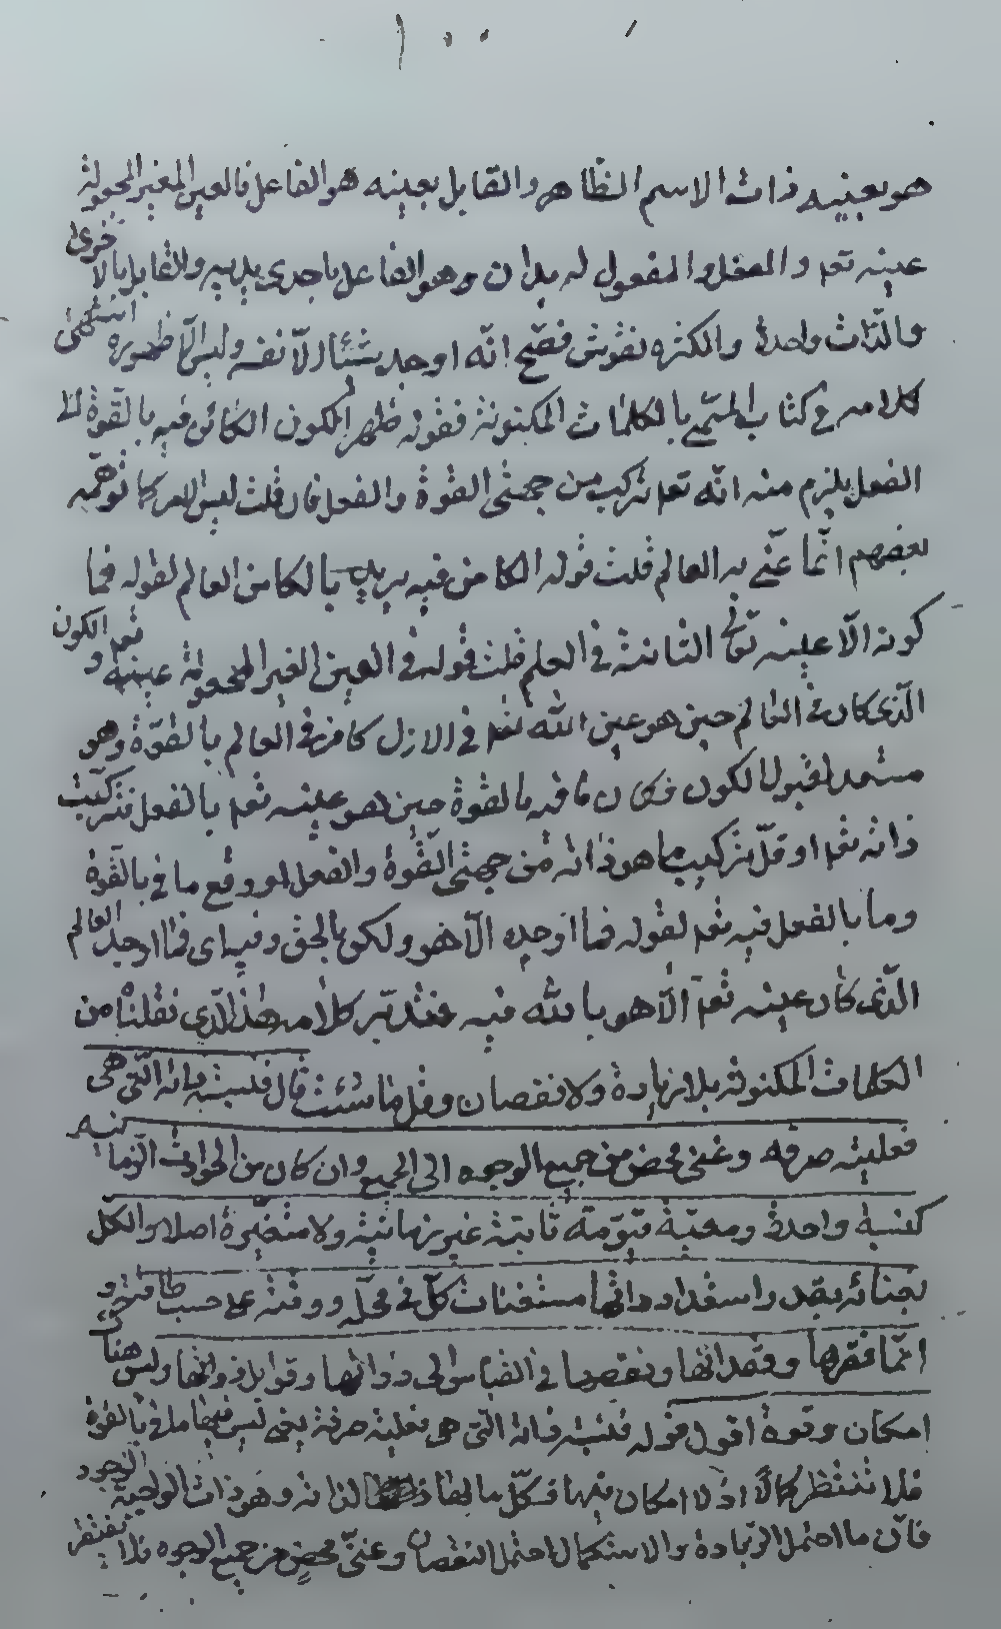 هو بعينه ذات الاسم الظاهر والقابل بعينه هو الفاعل فالعين الغير المجعولة
عينه تعم والفعل والمفعول له يدان وهو الفاعل باحدى يديه والقابل بالاخرى
والذات واحدة والكثرة نقوش فصح انه ما اوجد شيئا الا نفسه وليس الا ظهوره انتهى
كلامه في كتابه المسمى بالكلمات المكنونة فقوله ظهر الكون الكائن فيه بالقوة الى
الفعل يلزم منه انه تعم تركب من جهتى القوة والفعل فان قلت ليس الامر كما توهمه
بعضهم انما عنى به العالم قلت قوله الكامن فيه يريد بالكامن العالم لقوله فما
كونه الا عينه تعالى الثابتة في العلم قلت قوله في العين الغير المجعولة عينه تعم والكون
الذى كان في العالم حين هو عين الله تعم في الازل كامن في العالم بالقوة وهو
مستعد لقبول الكون فكان ما فيه بالقوة حين هو عينه تعم بالفعل فتركبت
ذاته تعم او قل تركيب ما هو ذاته من جهتى القوة والفعل لو وقع ما في بالقوة
وما بالفعل فيه تعم لقوله فما اوجده الا هو ولكن بالحق وفيه اى فما اوجد العالم
الذى كان عينه تعم الا هو بالله فيه فتدبر كلامه هذا الذى نقلناه من
الكلمات المكنونة بلا زيادة ولا نقصان وقل ما شئت قال فلنسبة ذاته التى هى
فعلية صرفة وغنى محض من جميع الوجوه الى الجميع وان كان من الحوادث الزمانية
كنسبة واحدة ومعية قيومية ثابتة غير زمانية ولا متغيرة اصلا والكل
بغنائه بقدر استعداداتها مستغنيات كل في محله ووقته على حسب طاقته و
انما فقرها وفقدانها ونقصها في القياس الى ذواتها وقوابل ذواتها وليس هناك
امكان وقوة اقول قوله فلنسبة ذاته التى هى فعلية صرفة يعنى ليس فيها ما في بالقوة
فلا تنتظر كمالا اذ لا امكان فيها فكل ما لها لذاته وهو ذات الواجبة الوجود
فان ما احتمل الزيادة والاستكمال احتمل النقصان وغنى محض من جميع الوجوه فلا يفتقر